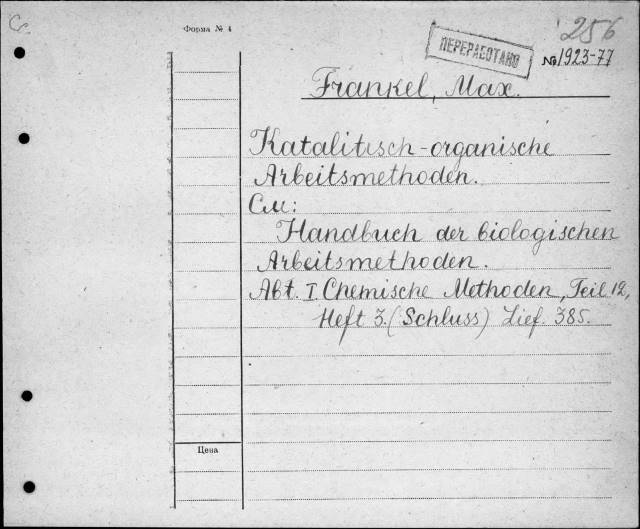 Форма № 4
256
ПЕРЕРАБОТАНО
№ 1923-77
Frankel, Max.
Katalitisch-organische
Arbeitsmethoden.
См:
Handbuch der biologischen
Arbeitsmethoden.
Abt. I. Chemische Methoden, Teil 12,
Heft 3. (Schluss) Lief. 385.
Цена